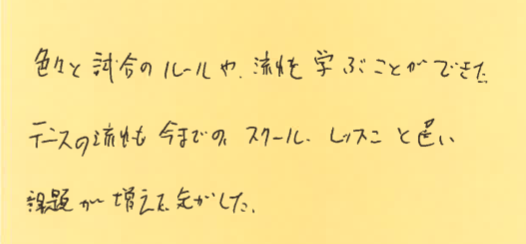 色々と試合のルールや、流れを学ぶことができた
テニスの流れも今までの、スクール、レッスンと違い
課題が増えた気がした。